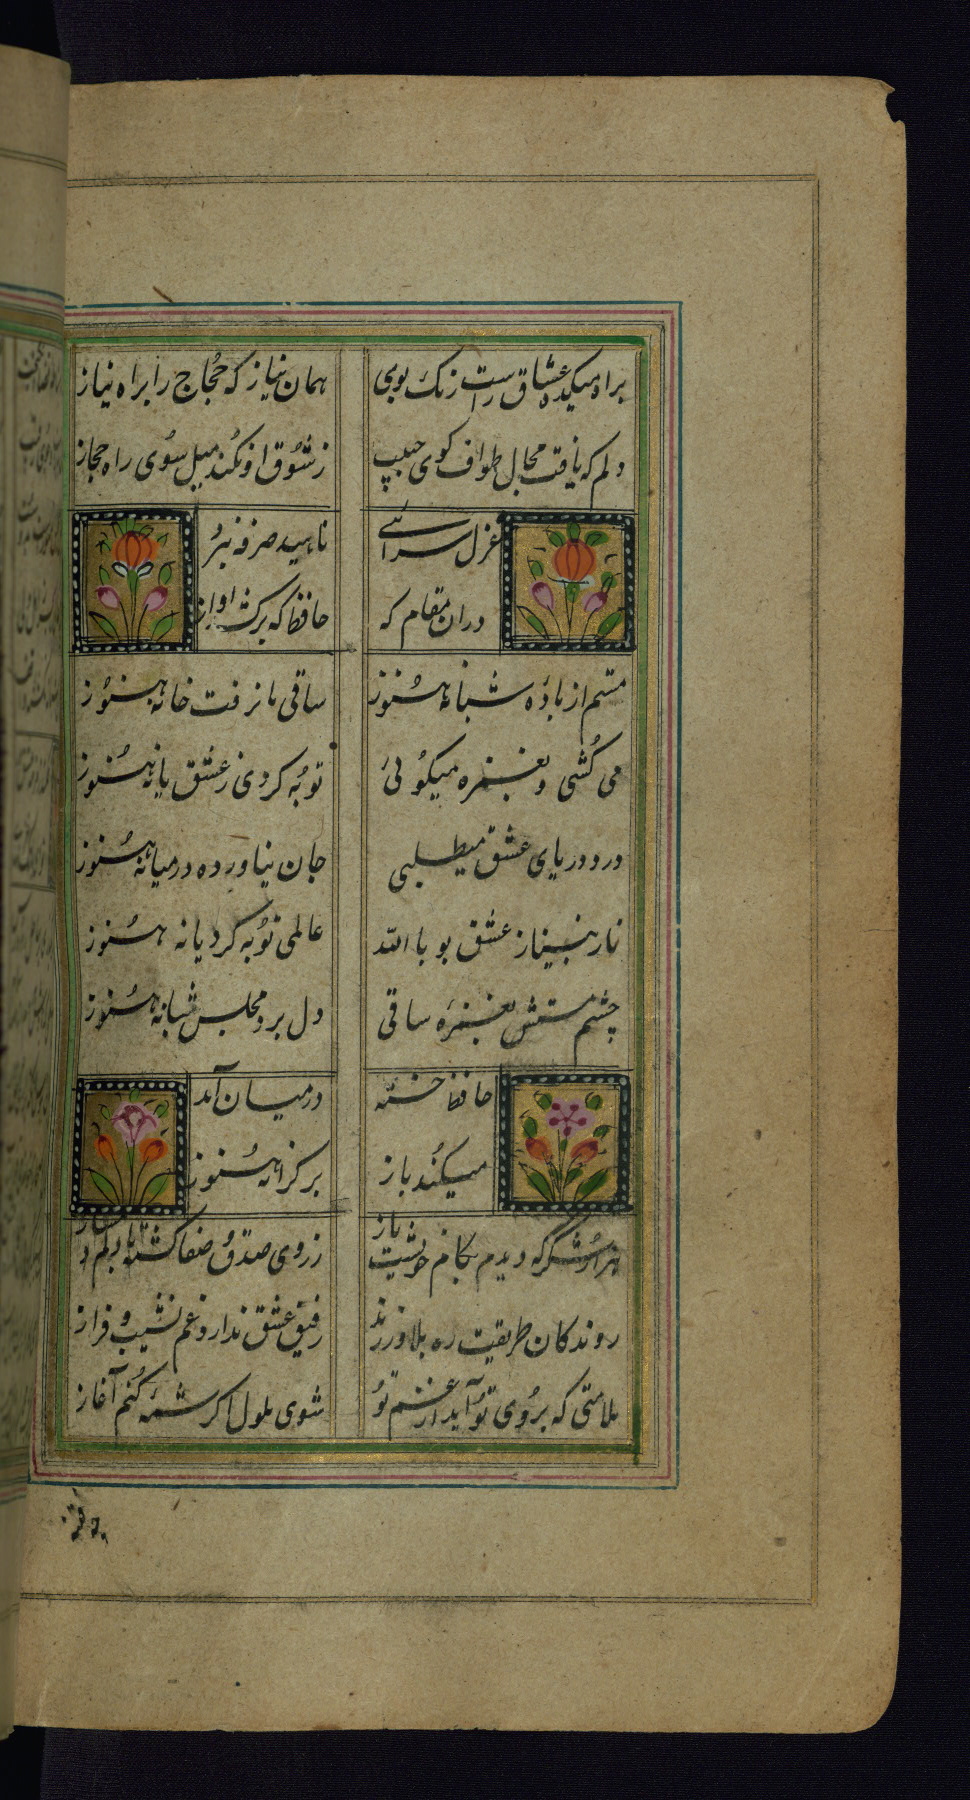 براه میکده عشاق راست رنک بوی همان نیاز که حجاج را براه نیاز
دلم که یافت مجال طواف کوی حبیب ز شوق او نکند میل سوی راه حجاز
غزل سرائے ناهید صرفه نبرد
دران مقام که حافظ که برکشد اواز
مستم از بادهٔ شبانه هنوز ساقی ما نرفت خانه هنوز
می کُشی و بغمزه میکوئی توبه کردی ز عشق یا نه هنوز
درد دریای عشق میطلبی جان نیاورده در میانه هنوز
ناز بنیناز عشق بو باالله عالمی توبه کرد یا نه هنوز
چشم مستش بغمزه ساقی دل برد مجلس شبانه هنوز
حافظ خسته در میان آمد
میکند باز برکرانه هنوز
هزار شکر که دیدم بکام خویشت باز ز روی صدق و صفا کشته با دلم دمساز
روندکان طریقت ره بلا ورزند رفیق عشق ندارد غم نشیب و فراز
ملامتی که بروی تو آید از غم تو شوی ملول اکر شمهٔ کنم آغاز